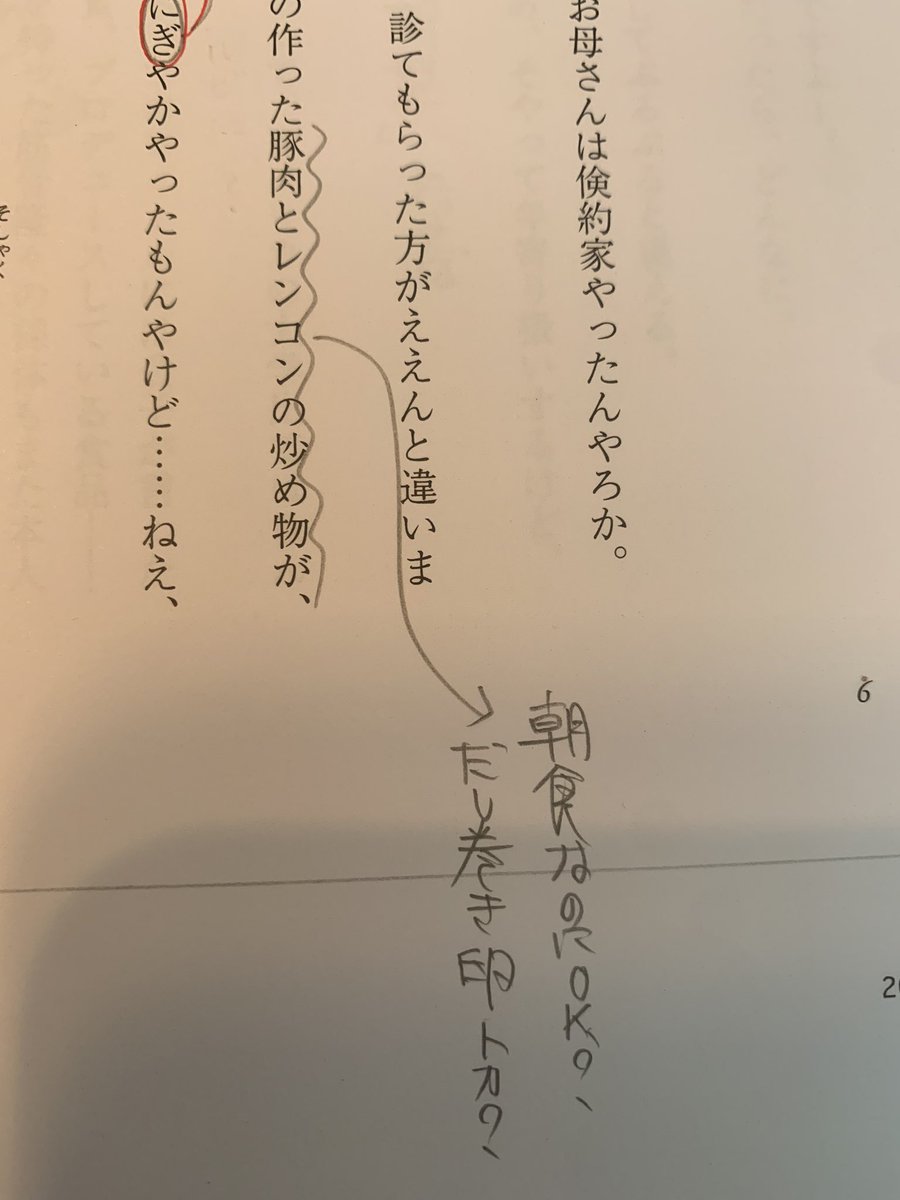 お母さんは倹約家やったんやろか。
診てもらった方がええんと違いま
の作った豚肉とレンコンの炒め物が、
にぎやかやったもんやけど……ねえ、
そしゃく
朝食なのにOK?、
だし巻き卵トカ?、
6
20